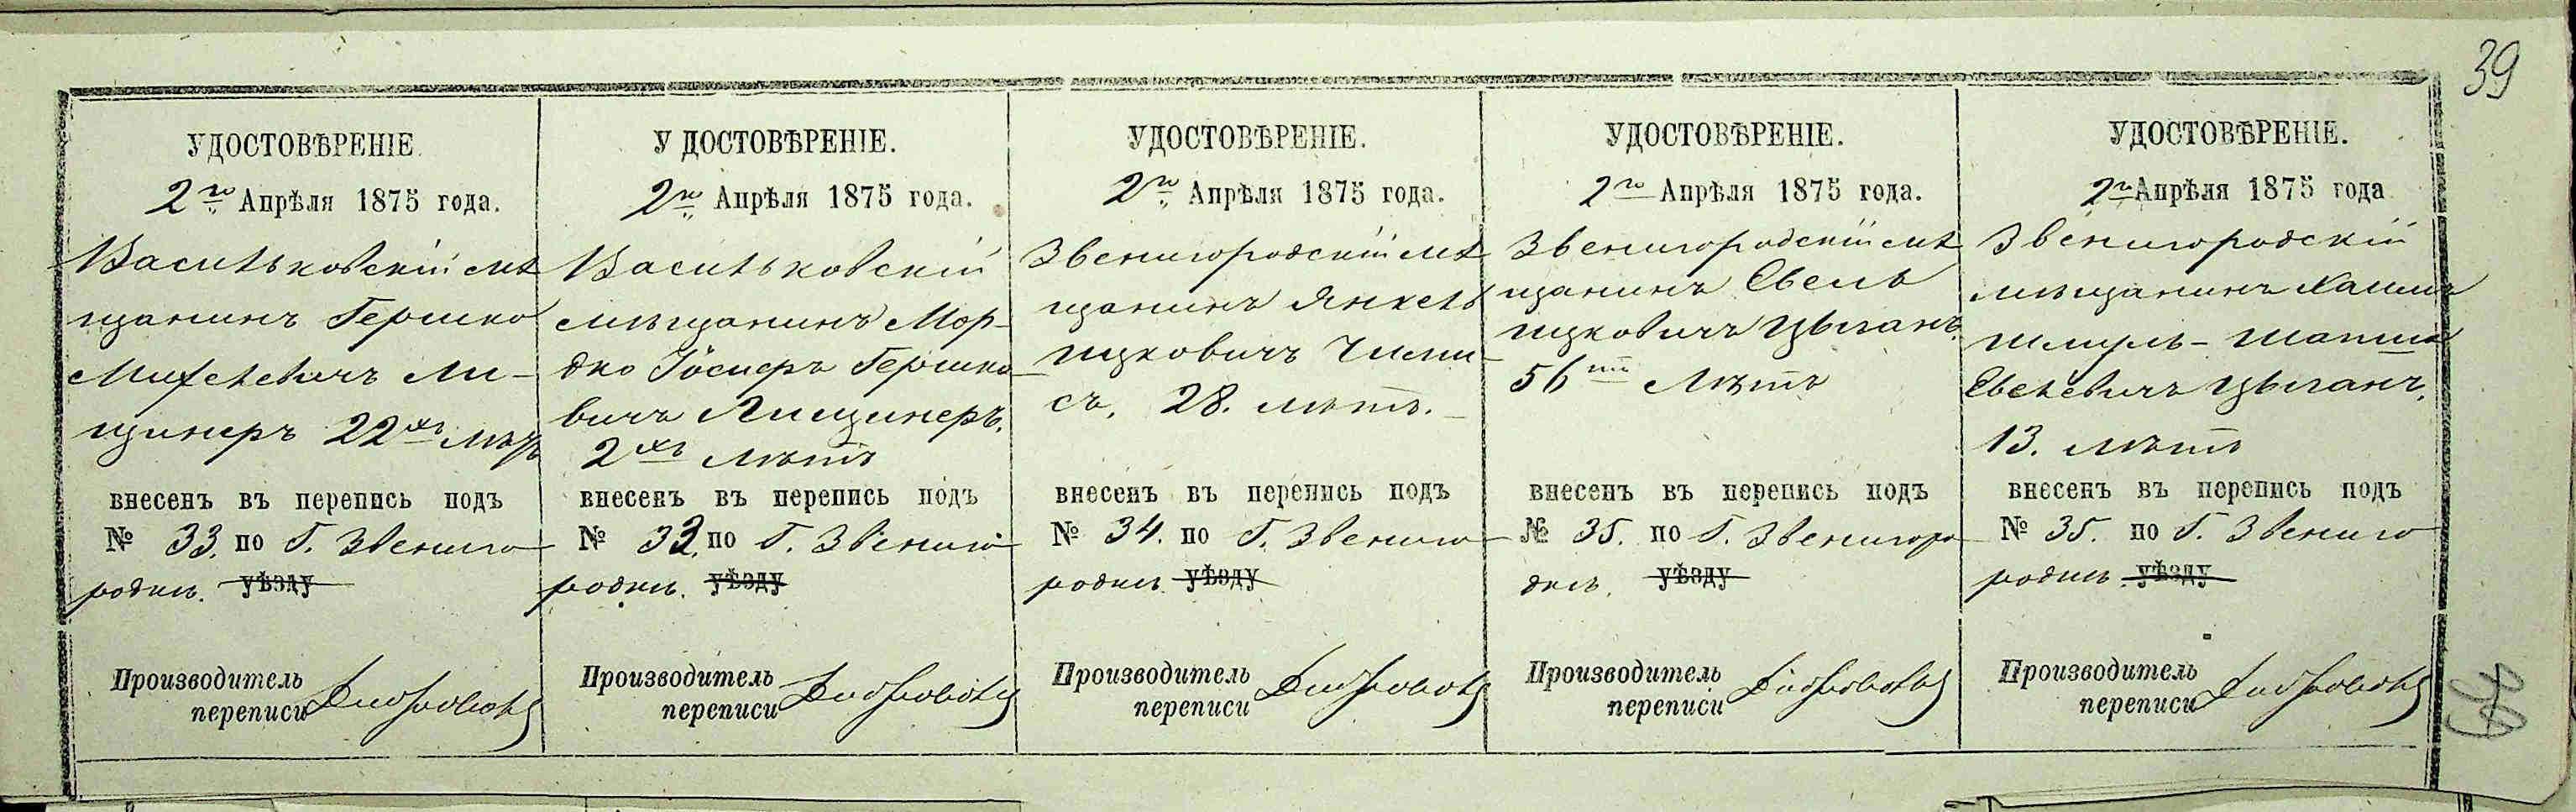 39
УДОСТОВѢРЕНІЕ
2го Апрѣля 1875 года.
Васильковскій мѣ
щанинъ Гершко
Михелевичъ Ли-
щинеръ 22хъ лѣтъ
внесенъ въ перепись подъ
№ 33. по Г. Звениго
родкѣ. уѣзду
Производитель
переписи
УДОСТОВѢРЕНІЕ.
2го Апрѣля 1875 года.
Васильковскій
мѣщанинъ Мор-
дко Іосиеръ Гершко-
вичъ Лищинеръ.
2хъ лѣтъ
внесенъ въ перепись подъ
№ 33. по Г. Звениго
родкѣ. уѣзду
Производитель
переписи
УДОСТОВѢРЕНІЕ.
2го Апрѣля 1875 года.
Звенигородскій мѣ
щанинъ Янкель
Ицковичъ Чими-
съ, 28. лѣтъ.
внесенъ въ перепись подъ
№ 34. по Г. Звениго
родкѣ уѣзду
Производитель
переписи
УДОСТОВѢРЕНІЕ.
2го Апрѣля 1875 года.
Звенигородскій мѣ
щанинъ Евель
Ицковичъ Цыганъ.
56ти лѣтъ
внесенъ въ перепись подъ
№ 35. по Г. Звенигоро
дкѣ. уѣзду
Производитель
переписи
УДОСТОВѢРЕНІЕ.
2го Апрѣля 1875 года
Звенигородскій
мѣщанинъ Хаимъ
Шмуль-Шапша
Евелевичъ Цыганъ.
13. лѣтъ
внесенъ въ перепись подъ
№ 35. по Г. Звениго
родкѣ. уѣзду
Производитель
переписи